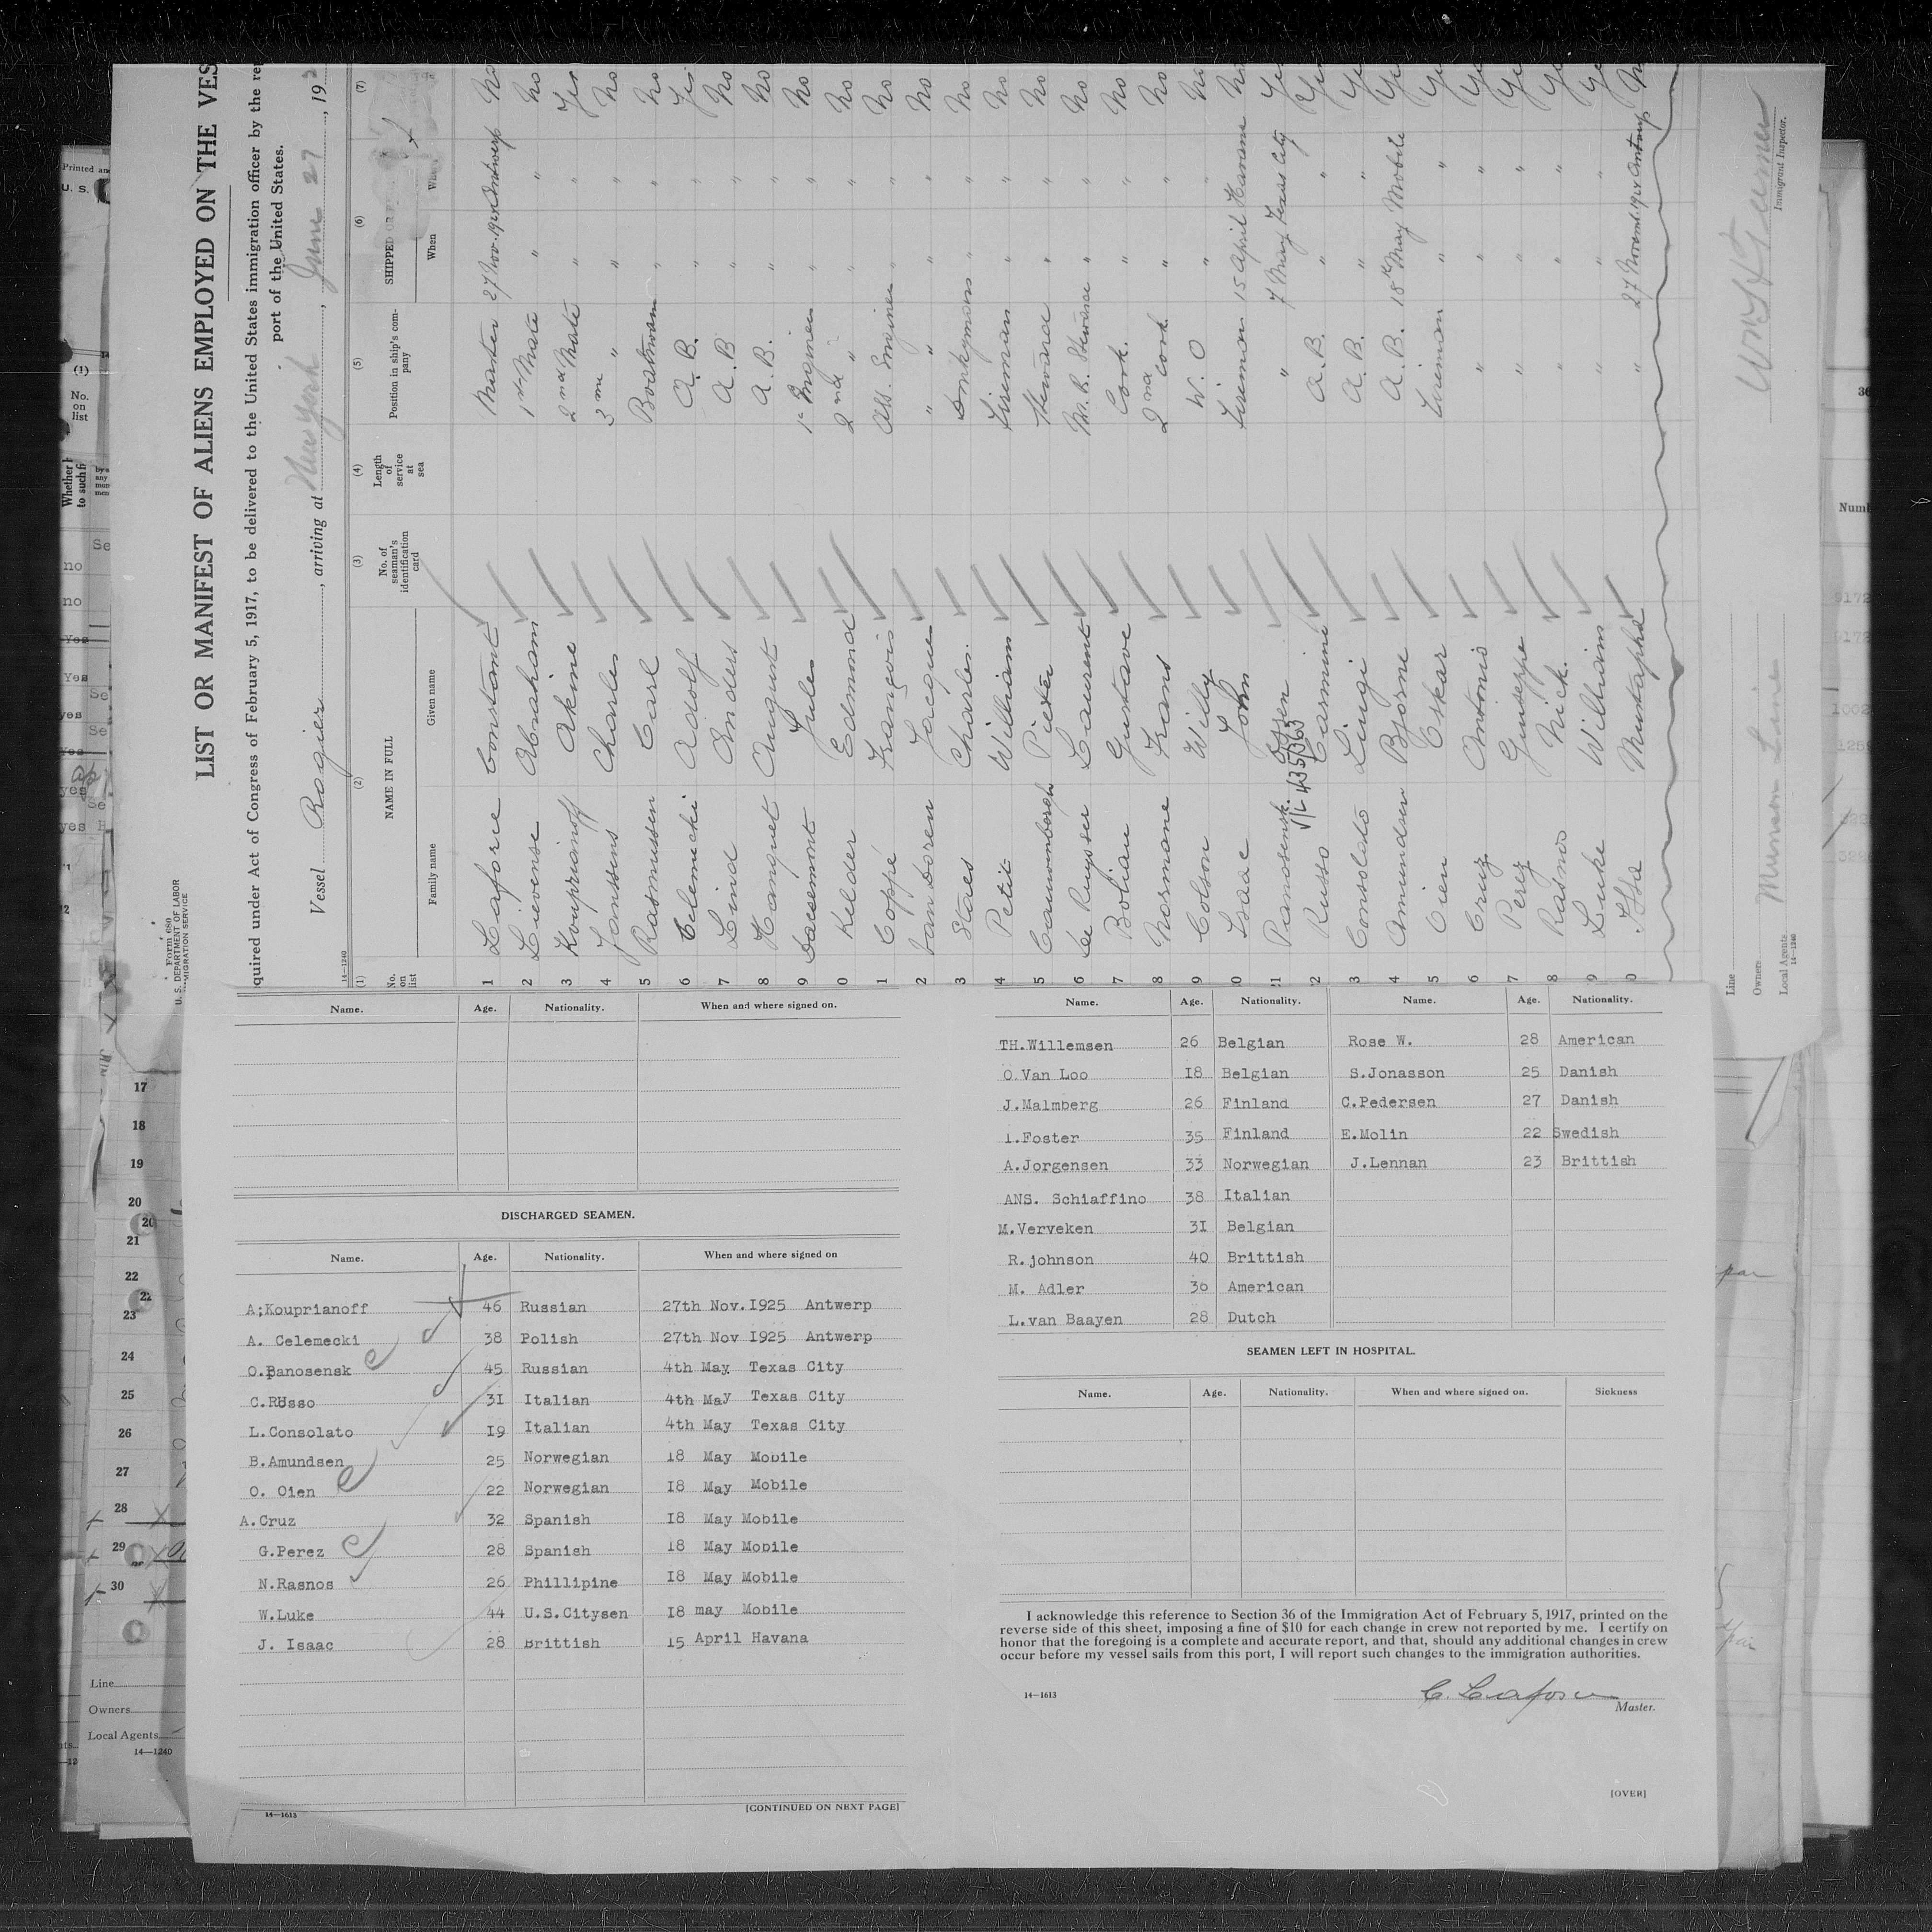 LIST OR MANIFEST OF ALIENS EMPLOYED ON THE VES
quired under Act of Congress of February 5, 1917, to be delivered to the United States immigration officer by the re
port of the United States.
Form 680
U. S. DEPARTMENT OF LABOR
MIGRATION SERVICE
Vessel Rogier, arriving at New York, June 27, 192
14—1240
(1) (2) (3) (4) (5) (6) (7)
No. on list NAME IN FULL No. of seaman's identification card Length of service at sea Position in ship's company SHIPPED OR
Family name Given name When Whe
1 Laforie Constant Master 27 Nov. 192 Antwerp No
2 Lievense Abraham 1st Mate " " No
3 Kouprianoff Akime 2nd Mate " " Yes
4 Janssens Charles 3 " " " No
5 Rasmussen Carl Boatsman " " No
6 Celemecki Adolf A. B. " " Yes
7 Lind Anders A. B " " No
8 Hanquet August A. B. " " No
9 Daesemont Jules 1e Engineer " " No
0 Kelder Edmond 2nd " " " No
1 Coppé François Ass. Engineer " " No
2 Van Doren Jacques " " " No
3 Staes Charles. Donkeyman " " No
4 Petit William Fireman " " No
5 Cauwenbergh Pieter Steward " " No
6 De Ruysser Laurent M. R. Steward " " No
7 Bolian Gustave Cook. " " No
8 Normane Frans 2nd Cook " " No
9 Colson Willy W. O " " No
0 Isaac John Fireman 15 April Havana No
21 Panosensk. " 7 May Texas City Yes
2 Russo Carmine A. B. " " Yes
3 Consolato Luigi A. B. " " Yes
4 Amundsen Bjorne A. B. 18th May Mobile Yes
5 Oien Oskar Fireman " " Yes
6 Cruz Antonio " " " Ye
7 Perez Guiseppe " " " Ye
8 Rasnos Nick. " " " Ye
9 Luke William " " " Ye
0 Mustapha " 27 Novemb. 192 Antwerp
Line
Owners Munson Line
Local Agents
14—1240
Immigrant Inspector.
Name. Age. Nationality. When and where signed on.
DISCHARGED SEAMEN.
Name. Age. Nationality. When and where signed on
A;Kouprianoff 46 Russian 27th Nov.I925 Antwerp
A. Celemecki 38 Polish 27th Nov I925 Antwerp
O.Panosensk 45 Russian 4th May Texas City
C.RUsso 3I Italian 4th May Texas City
L.Consolato I9 Italian 4th May Texas City
B.Amundsen 25 Norwegian I8 May Mobile
O. Oien 22 Norwegian I8 May Mobile
A.Cruz 32 Spanish I8 May Mobile
G.Perez 28 Spanish I8 May Mobile
N.Rasnos 26 Phillipine I8 May Mobile
W.Luke 44 U.S.Citysen I8 may Mobile
J. Isaac 28 Brittish I5 April Havana
14—1613
[CONTINUED ON NEXT PAGE]
Name. Age. Nationality. Name. Age. Nationality.
TH.Willemsen 26 Belgian Rose W. 28 American
O.Van Loo I8 Belgian S.Jonasson 25 Danish
J.Malmberg 26 Finland C.Pedersen 27 Danish
I.Foster 35 Finland E.Molin 22 Swedish
A.Jorgensen 33 Norwegian J.Lennan 23 Brittish
ANS. Schiaffino 38 Italian
M.Verveken 3I Belgian
R.johnson 40 Brittish
M. Adler 30 American
L.van Baayen 28 Dutch
SEAMEN LEFT IN HOSPITAL.
Name. Age. Nationality. When and where signed on. Sickness
I acknowledge this reference to Section 36 of the Immigration Act of February 5, 1917, printed on the
reverse side of this sheet, imposing a fine of $10 for each change in crew not reported by me. I certify on
honor that the foregoing is a complete and accurate report, and that, should any additional changes in crew
occur before my vessel sails from this port, I will report such changes to the immigration authorities.
14—1613
Master.
[OVER]
17
18
19
20
21
22
23
24
25
26
27
28
29
30
Line
Owners
Local Agents
14—1240